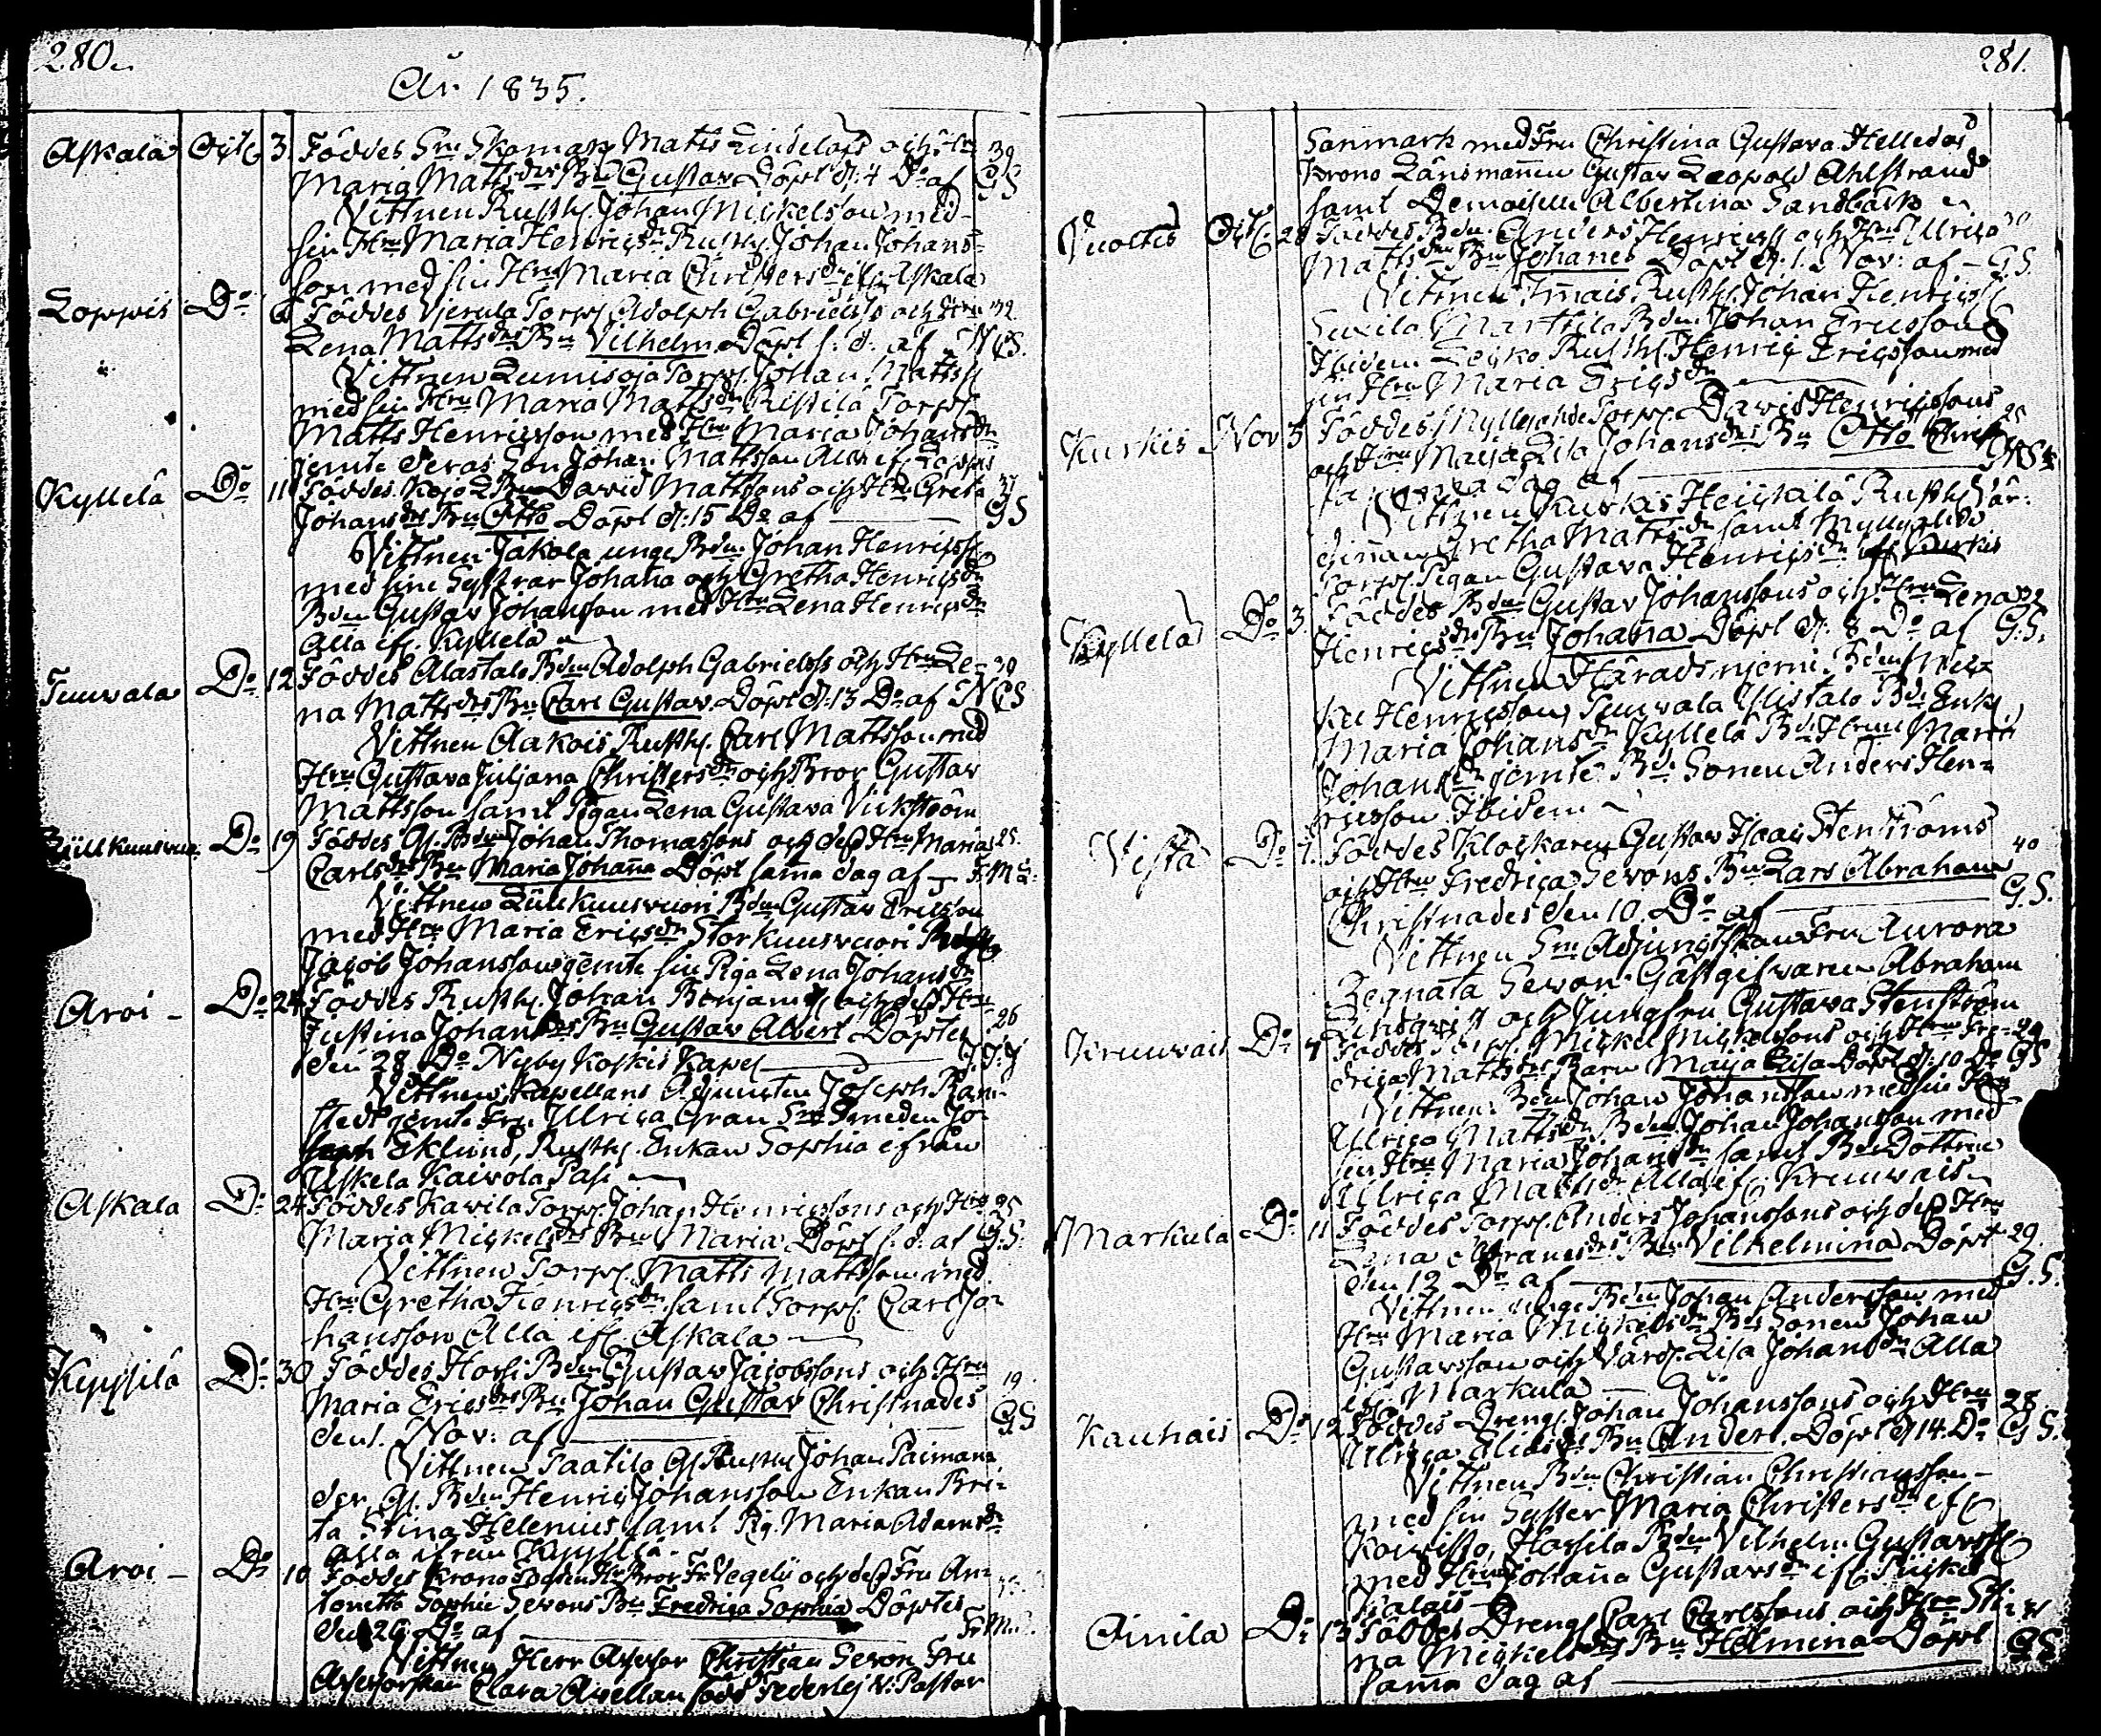 280.
År 1835.
Askala Oct. 3 Föddes Sn Skomak Matts Lindelöfs och Hru 39
Maria Mattsdrs Bn Gustav Döpt d. 4 Do af GS
Vittnen Rusth. Johan Mickelsson med
sin Hru Maria Henricsdr Rusth. Johan Johans-
son med sin Hru Maria Christersdr ifr. Askala
Loppis Do 6 Föddes Torp. Adolph Gabrielss och Hru 32.
Lena Mattsdrs Bn Vilhelm Döpt s. d. af NGS.
Vittnen Torp. Johan Mattss
med sin Hru Maria Mattsdr Ristilä Torp.
Matts Henricsson med Hru Maria Johansdr
jemte deras Son Johan Mattsson Alla if. Loppis
Kyllelä Do 11 Föddes Kojo Bn David Mattssons och Hru Greta 37
Johansdrs Bn Otto Döpt d. 15 Do af GS
Vittnen Jakola unge Bdn. Johan Henricss
med sine Systrar Johana och Gretha Henricsdr
Bdn Gustav Johansson med Hru Lena Henricsdr
Alla if. Kyllelä
Tuuvala Do 12 Föddes Alastalo Bden Adolph Gabrielss och Hru Le- 30
na Mattsdrs Bn Carl Gustav Döpt d. 13 Do af NGS
Vittnen Aakois Rusth. Carl Mattsson med
Hru Gustava Juljana Christersdr och Bror Gustav
Mattsson samt Pigan Lena Gustava Vickström
Do 19 Föddes Gl. Bden Johan Thomassons och dess Hru Maria 25.
Carlsdrs Bn Maria Johana Döpt sama dag af F.M.
Vittnen Kuusvuori Bdn Gustav Ericsson
med Hru Maria Ericsdr Storkuusvuori
Jacob Johansson jemte sin Piga Lena Johansdr
Aroi - Do 24 Föddes Rusth. Johan Benjamss och dess Hru
Justina Johansdrs Bn Gustav Albert Döptes 26
den 28 Do Nyby Koskis Kapel J.J.J
Vittnen Kapellans Adjuncten Joseph
jemte Fru Ulrica Gran Smeden Jo-
seph Eklund, Rusth. Enkan Sophia ifrån
Uskela Kaivola Pasi
Askala Do 24 Föddes Kavila Torp. Johan Henricssons och Hru 25
Maria Mickelsdrs Bn Maria Döpt s. d. af G.S.
Vittnen Torp. Matts Mattsson med
Hru Gretha Henricsdr samt Torp. Carl Jo-
hansson Alla if. Askala
Kyysilä Do 30 Föddes Hossi Bden Gustav Jacobssons och Hru
Maria Ericsdrs Bn Johan Gustav Christnades 19.
den 1. Nov. af GS
Vittnen Taatila Gl. Rusth. Johan
der, Gl. Bden Henric Johansson Enkan Bri-
ta Stina Helenius samt Pig. Maria Adamsdr
Alla ifrån Kyysilä.
Aroi - Do 10 Föddes Krono Fr Vegelii och dess Fru An-
tonetta Sophie Sevons Bn Fredrica Sophia Döptes
den 26 Do af F.M.
Vittnen Herr Assessor Christian Sevon Fru
Assessorskan Clara Avellan född Federley V. Pastor
281.
Sanmark med Fru Christina Gustava Helledai
Krono Länsmannen Gustav Leopold Ahlstrand
samt Demoiselle Albertina Sandbäck
Vuoltis Oct. 28 Föddes Bdn. Anders Henricss och Hru Ulrica 30
Mattsdrs Bn Johanes Döpt d. 1. Nov: af - G.S.
Vittnen Rusth. Johan Henricss
Marttila Bdn. Johan Ericsson
Ibidem Rusth. Henric Ericsson med
sin Hru Maria Ericsdr
Kurkis Nov 3 Föddes Torp. David Henricssons 25
och Hru Maja Lisa Johansdrs Bn Otto
samma dag af
Vittnen Kurkis Heickilä Rusth. Vär-
dinnan Gretha Mattsdr samt
Torps. Pigan Gustava Henricsdr if. Kurkis
Kyllelä Do 3 Föddes Bdn Gustav Johanssons och Hru Lena 32
Henricsdrs Bn Johana Döpt d. 8 Do af G.S.
Vittnen Häradsnjemd. Bden
Henricsson Tuuvala Ylistalo Bd. Enk.
Maria Johansdr Kyllelä Bd. Hru Maria
Johansdr jemte Bd. Sonen Anders Hen-
ricsson Ibidem
Vista Do 7. Föddes Klockaren Gustav Isaac Stenströms
och Hru Fredrica Sevons Bn Lars Abraham 40
Christnades den 10. Do af G.S.
Vittnen Sn Adjunctskan Fru Aurora
Regnata Sevon Gästgifvaren Abraham
Lindqvist och Jungfru Gustava Stenström
Kreuvais Do 4 Föddes Torp. Mickel Mickelssons och Hru Fre- 24
drica Mattsdrs Barn Maija Lisa Döpt d. 10 Do GS
Vittnen Bdn Johan Johansson med sin Hru
Ulrica Mattsdr Bdn. Johan Johansson med
sin Hru Maria Johansdr samt Bde Dottren
Ulrica Mattsdr Alla if. Kreuvais
Markula Do 11 Föddes Torp. Anders Johanssons och dess Hru
Lena Bn Vilhelmina Döpt 29.
den 12 Do af G.S.
Vittnen unge Bden Johan Andersson med
Hru Maria Mickelsdr Bde Sonen Johan
Gustavsson och Värd. Lisa Johansdr Alla
if. Markula
Kauhais Do 12 Föddes Dreng. Johan Johanssons och Hru 28
Ulrica Eliasdrs Bn Anders. Döpt d. 14. Do GS.
Vittnen Bdn Christian Christiansson
med sin Syster Maria Christersdr if.
Koivisto, Hossila Bden Vilhelm Gustavss
med Hru Johana Gustavsdr if. Piickis
Kalais
Oinila Do 13 Föddes Dreng Carl Carlssons och Hru Sti-
na Mickelsdrs Bn Helmina Döpt GS
sama dag af